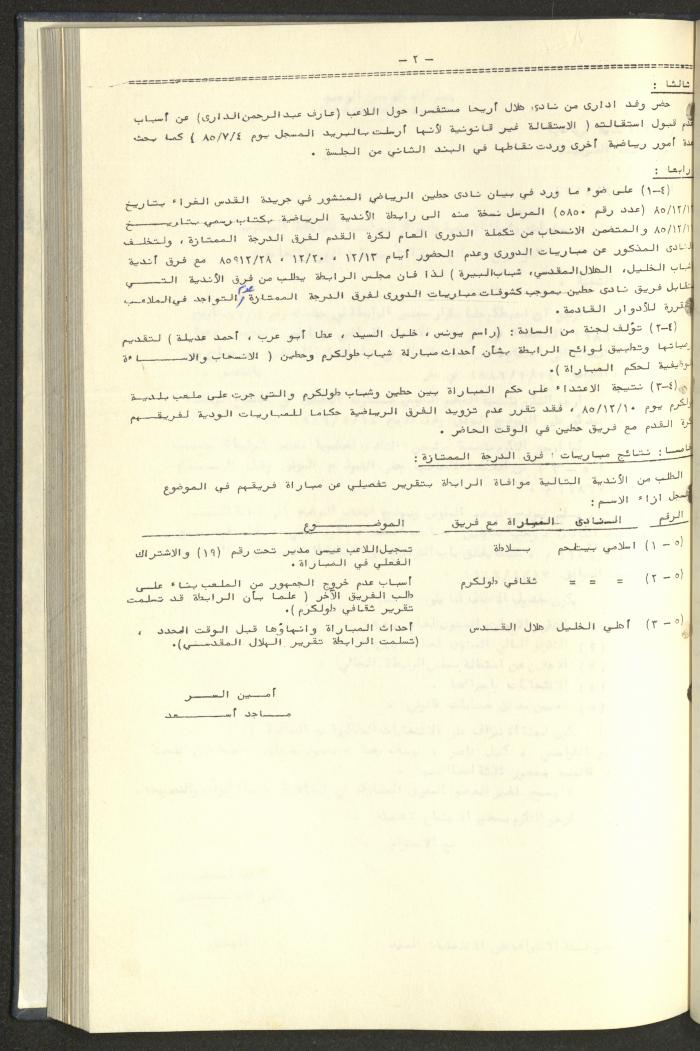 - ٢ -
ثالثا :
حضر وفد ادارى من نادى هلال أريحا مستفسرا حول اللاعب (عارف عبدالرحمن الدارى) عن أسباب
عدم قبول استقالته ( الاستقالة غير قانونية لأنها أرسلت بالبريد المسجل يوم ٨٥/٧/٤ ) كما بحث
عدة أمور رياضية أخرى وردت نقاطها في البند الثاني من الجلسة .
رابعا :
(٤-١) على ضوء ما ورد في بيان نادى حطين الرياضي المنشور في جريدة القدس الغراء بتاريخ
٨٥/١٢/ (عدد رقم ٥٨٥٠) المرسل نسخة منه الى رابطة الأندية الرياضية بكتاب رسمي بتاريخ
٨٥/١٢/ والمتضمن الانسحاب من تكملة الدورى العام لكرة القدم لفرق الدرجة الممتازة ، ولتخلف
النادى المذكور عن مباريات الدورى وعدم الحضور أيام ١٢/١٣ ، ١٢/٢٠ ، ٨٥٩١٢/٢٨ مع فرق أندية
شباب الخليل، الهلال المقدسي، شباب البيرة ) لذا فان مجلس الرابطة يطلب من فرق الأندية التي
ستقابل فريق نادى حطين بموجب كشوفات مباريات الدورى لفرق الدرجة الممتازة عدم التواجد في الملاعب
المقررة للأدوار القادمة .
(٤-٢) تؤلف لجنة من السادة : (راسم يونس ، خليل السيد ، عطا أبو عرب ، أحمد عديلة ) لتقديم
توصياتها وتطبيق لوائح الرابطة بشأن أحداث مباراة شباب طولكرم وحطين ( الانسحاب والاساءة
لحكم المباراة ).
(٤-٣) نتيجة الاعتداء على حكم المباراة بين حطين وشباب طولكرم والتي جرت على ملعب بلدية
طولكرم يوم ٨٥/١٢/١٠ ، فقد تقرر عدم تزويد الفرق الرياضية حكاما للمباريات الودية لفريقهم
كرة القدم مع فريق حطين في الوقت الحاضر .
خامسا: نتائج مباريات : فرق الدرجة الممتازة :
الطلب من الأندية التالية موافاة الرابطة بتقرير تفصيلي عن مباراة فريقهم في الموضوع
المسجل ازاء الاسم :
الرقم النادى المباراة مع فريق الموضوع
(٥ - ١) اسلامي بيت لحم بلاطة تسجيل اللاعب عيسى مدير تحت رقم (١٩) والاشتراك
الفعلي في المباراة .
(٥ - ٢) = = = ثقافي طولكرم أسباب عدم خروج الجمهور من الملعب بناء على
طلب الفريق الآخر ( علما بأن الرابطة قد تسلمت
تقرير ثقافي طولكرم ).
(٥ - ٣) أهلي الخليل هلال القدس أحداث المباراة وانهاؤها قبل الوقت المحدد ،
(تسلمت الرابطة تقرير الهلال المقدسي).
أمين السر
ماجد أسعد